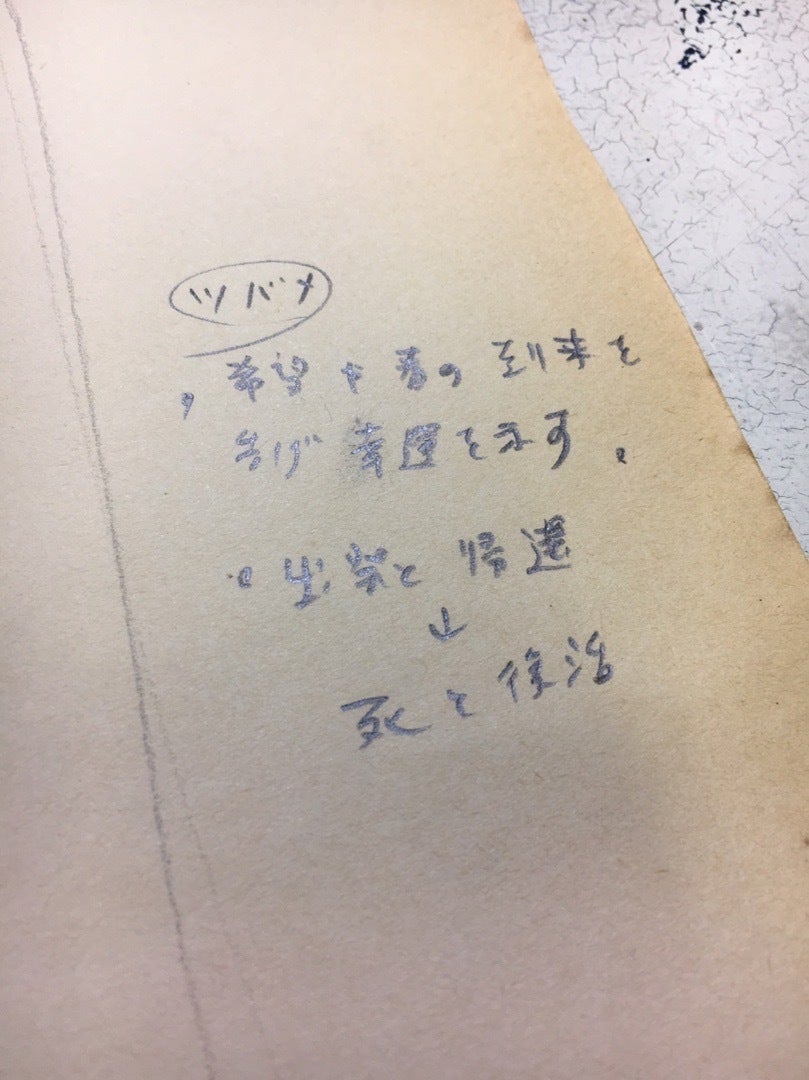 ツバメ
・希望や春の到来を
告げ幸運を示す。
・出発と帰還
↓
死と復活